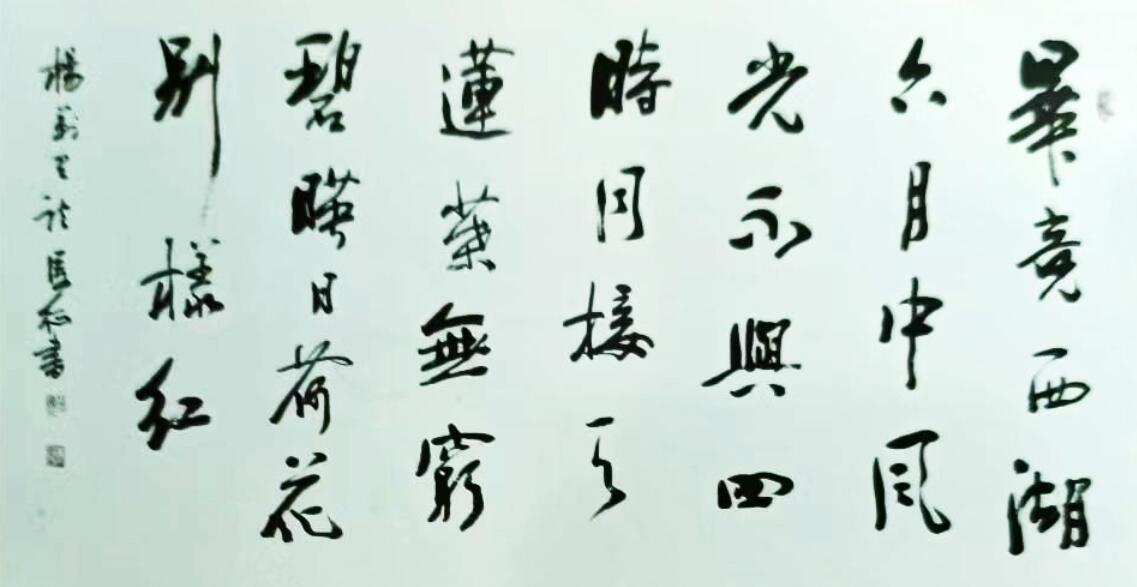 畢竟西湖
六月中風
光不與四
時同接天
蓮葉無窮
碧暎日荷花
別樣紅
楊萬里詩 書